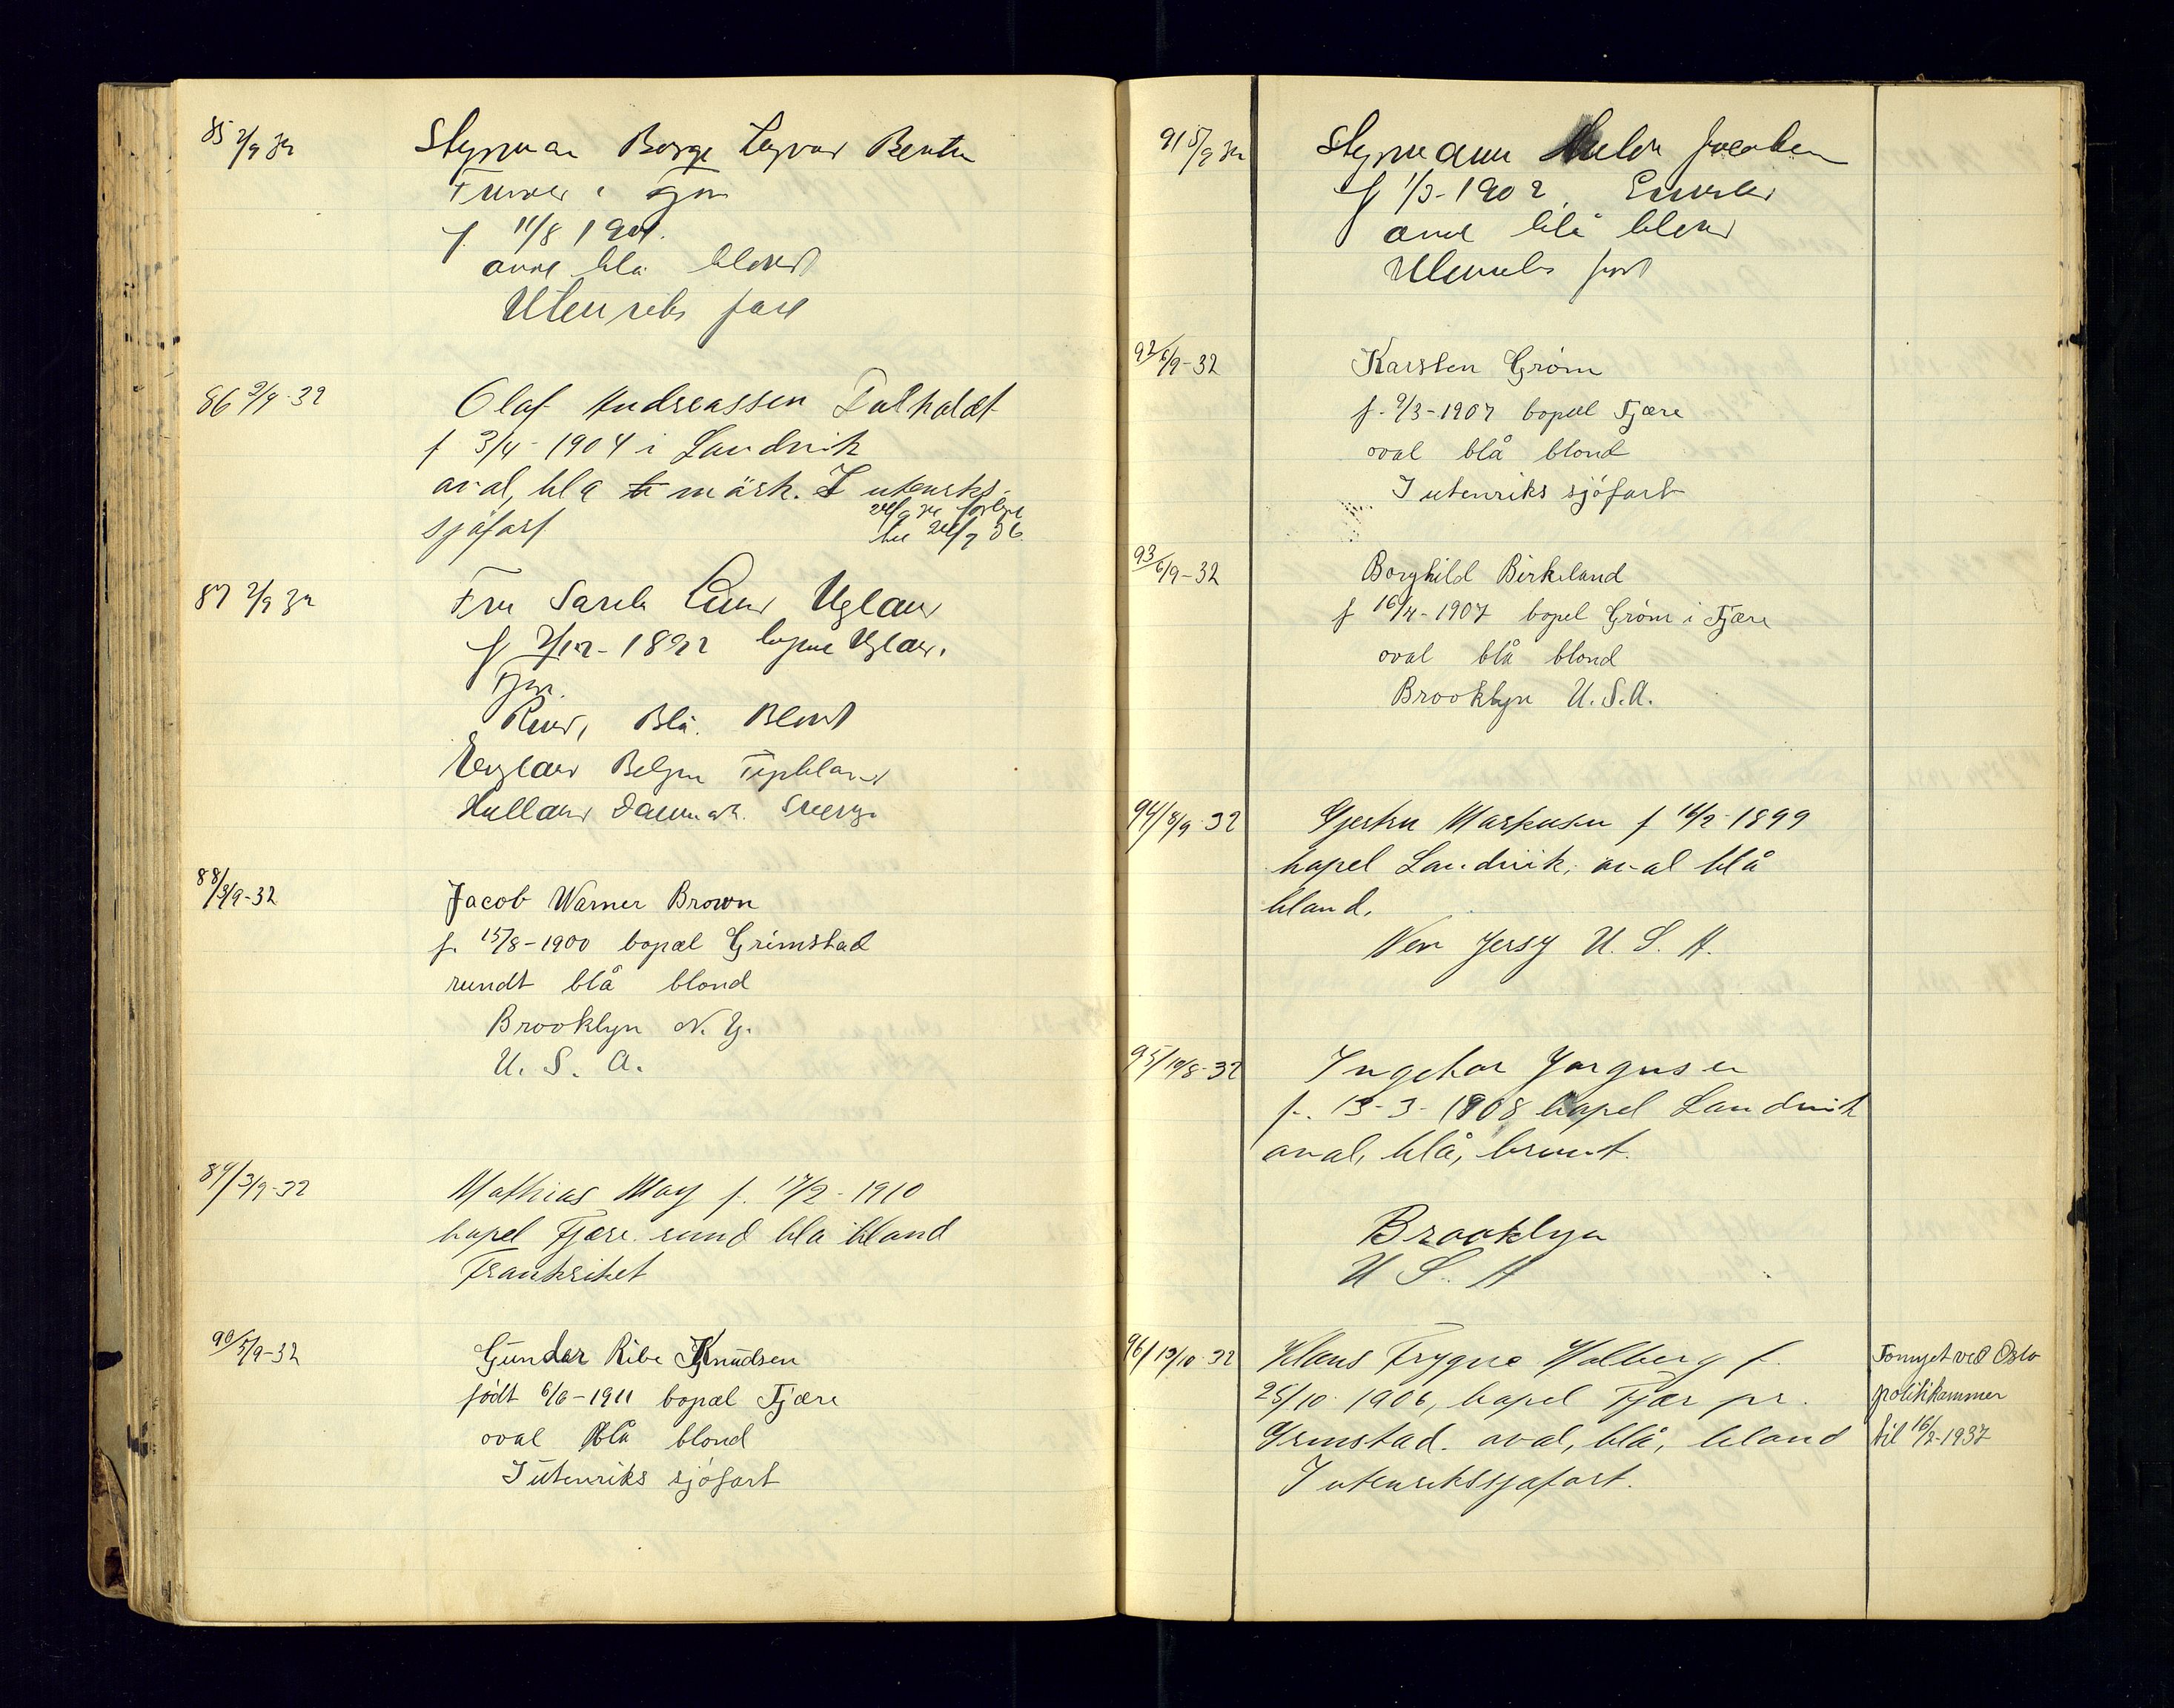 85 2/9 32
Styrman Borge
i Fjære
f. 11/8 190
oval blå blond
Utenriks fart
86 2/9-32
Olaf Andreassen Dalholdt
f 3/4-1904 i Landvik
oval, blå mörk. I utenriks-
sjöfart
24/9 34 forlenget
til 24/9 36
87 2/9 32
Fru Ugland
f 2/12-1892 bopæl Ugland,
Fjære.
Rund, Blå. Blont
England Belgien Tyskland
Holland Danmark. Sverge
88/3/9-32
Jacob Warner Brown
f. 15/8-1900 bopæl Grimstad
rundt blå blond
Brooklyn N. Y.
U. S. A.
89/3/9-32
Mathias May f. 17/2-1910
bopel Fjære. rund blå bland
Frankriket
90/5/9-32
Gunder Ribe Knudsen
födt 6/6-1911 bopæl Fjære
oval blå blond
I utenriks sjöfart
91 5/9 32
Styrmann Jacobsen
f 1/3-1902
oval blå blond
Utenriks fart
92/6/9-32
Karsten Gröm
f. 9/3-1907 bopæl Fjære
oval blå blond
I utenriks sjöfart
93/6/9-32
Borghild Birkeland
f 16/4-1907 bopel Gröm i Fjære
oval blå blond
Brooklyn U. S. A.
94/8/9-32
Markusen f 16/2-1899
bopel Landvik, oval blå
bland.
New Jersy U. S. A.
95/10/8-32
Ingebor Jorgnsen
f. 13-3-1908 bopel Landvik
oval, blå, brunt.
Brooklyn
U S. A
96/13/10-32
Klaus Trygve Holberg f.
25/10-1906, bopel Fjær pr.
Grmstad. oval, blå, bland
I utenrikssjøfart.
Fornyet ved Oslo
politikammer
til 16/2-1937